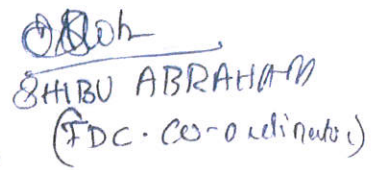 SHIBU ABRAHAM
(FDC. Co-ordinator)